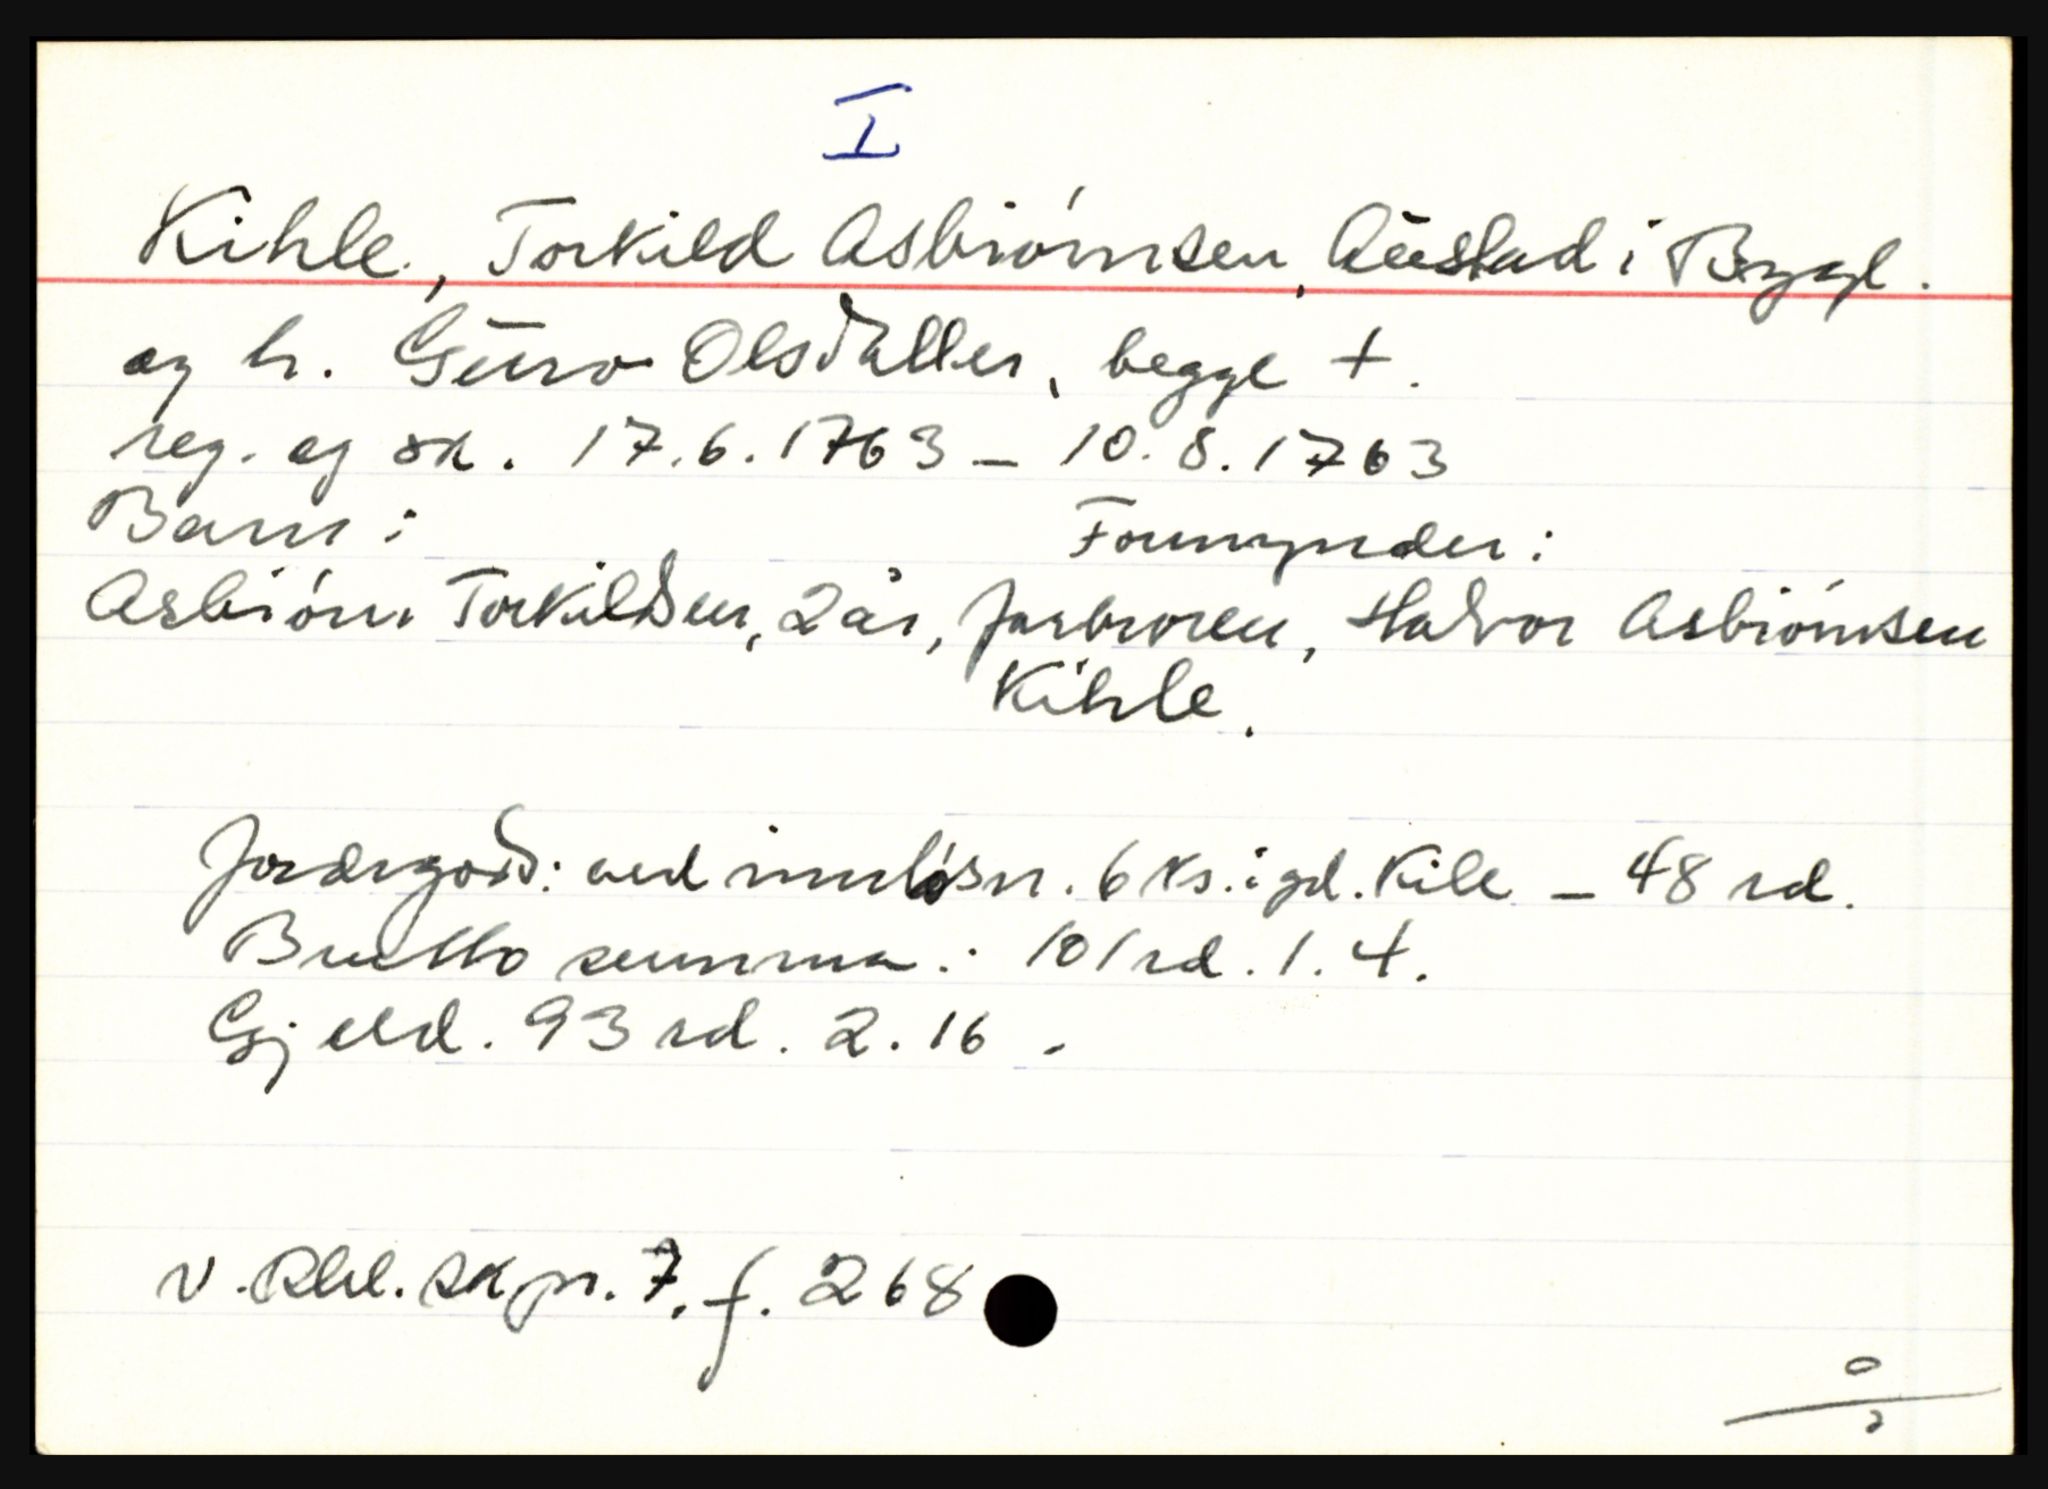 I
Kihle, Torkild Asbiórnsen, Aūstad i Bygl.
og h. Gūro Olsdatter, begge +.
reg. og sk. 17.6.1763 – 10.8.1763
Barn: Formynder:
Asbiórn Torkildsen, 2 år, farbroren, Halvor Asbiórnsen
Kihle.
Jordegods: ved innløsn. 6 ks. i gd. Kile – 48 rd.
Brutto summa: 101 rd. 1. 4.
Gjeld. 93 rd. 2. 16.
v. Rbl. sk pr. 7. f. 268